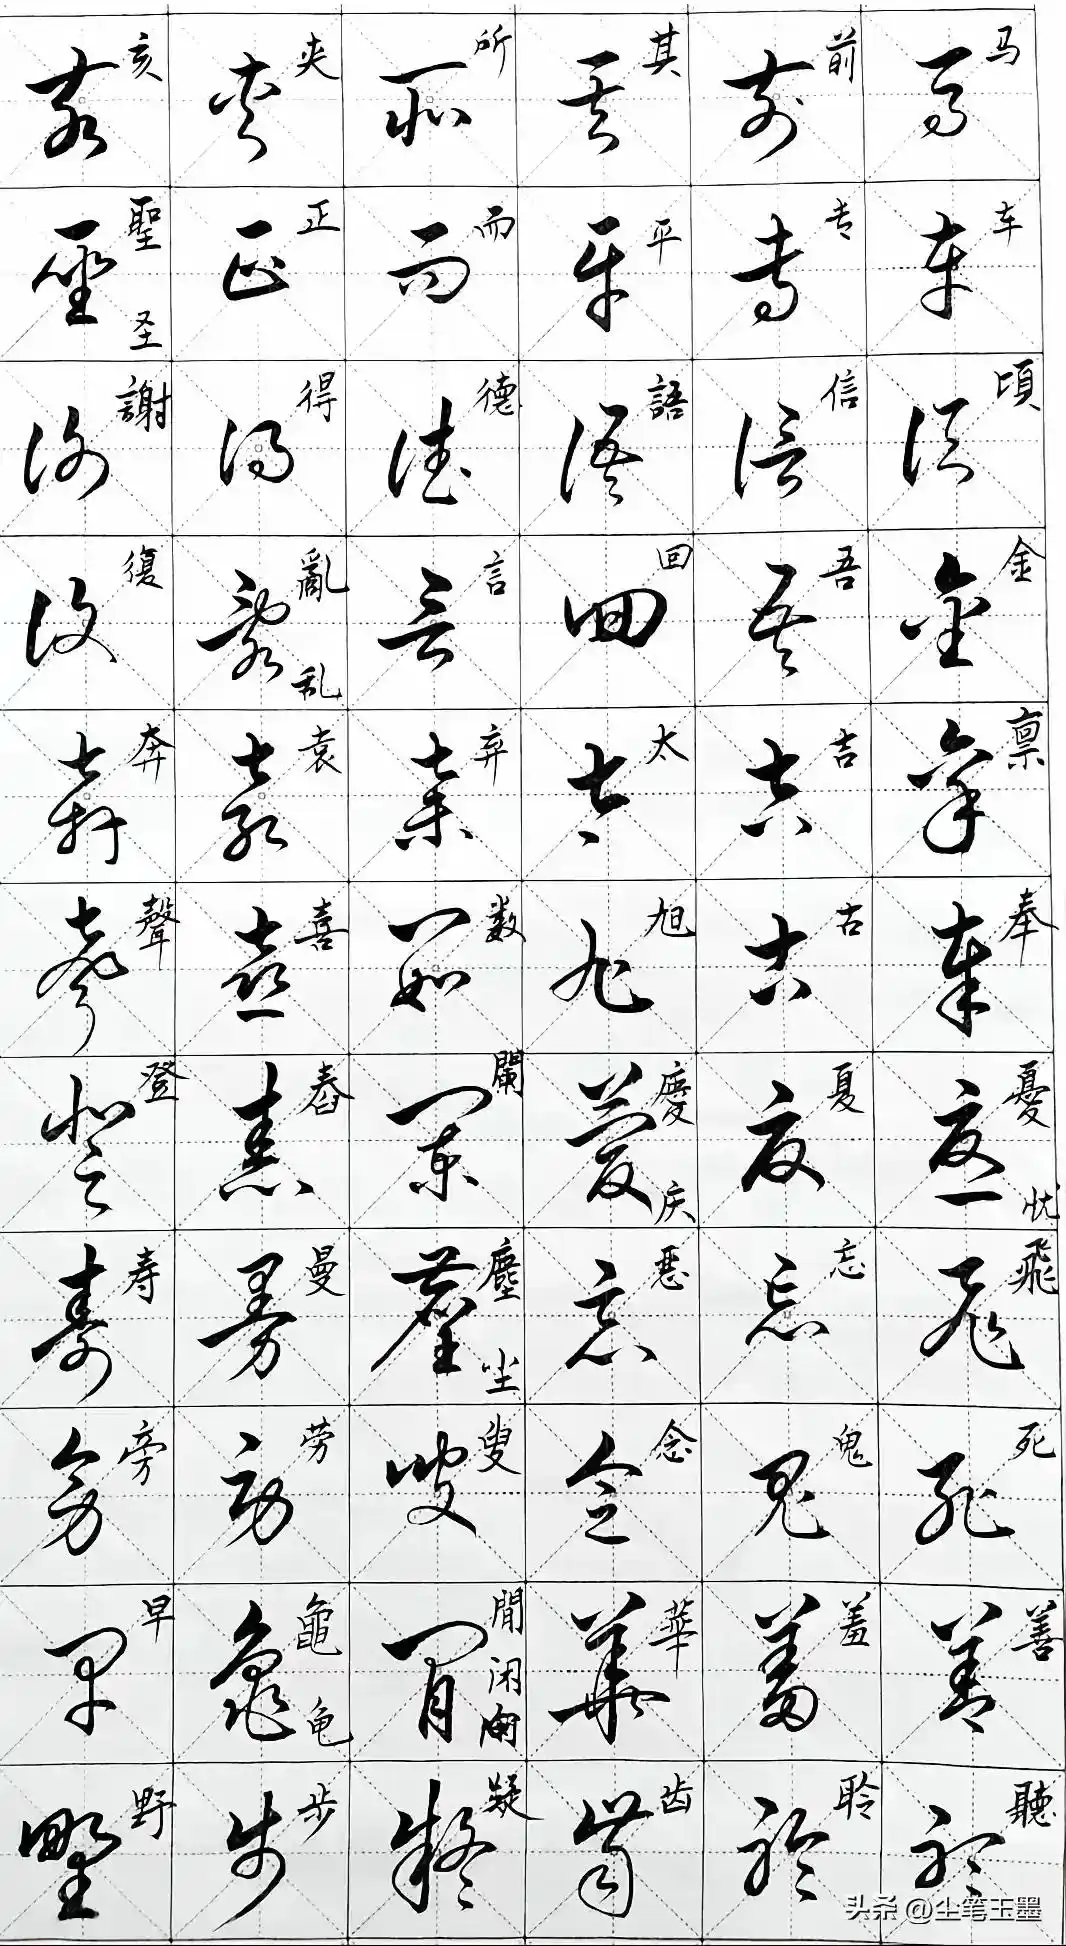 亥 夹 所 其 前 马
聖 圣 正 而 平 专 车
謝 得 德 語 信 頃
復 亂 乱 言 回 吾 金
奔 袁 弃 太 吉 禀
聲 喜 数 旭 古 奉
登 舂 闌 慶 庆 夏 憂 忧
寿 曼 塵 尘 恶 忘 飛
旁 劳 叟 念 鬼 死
早 龜 龟 間 闲 華 羞 善
野 步 凝 齿 聆 聽
头条 @尘笔玉墨